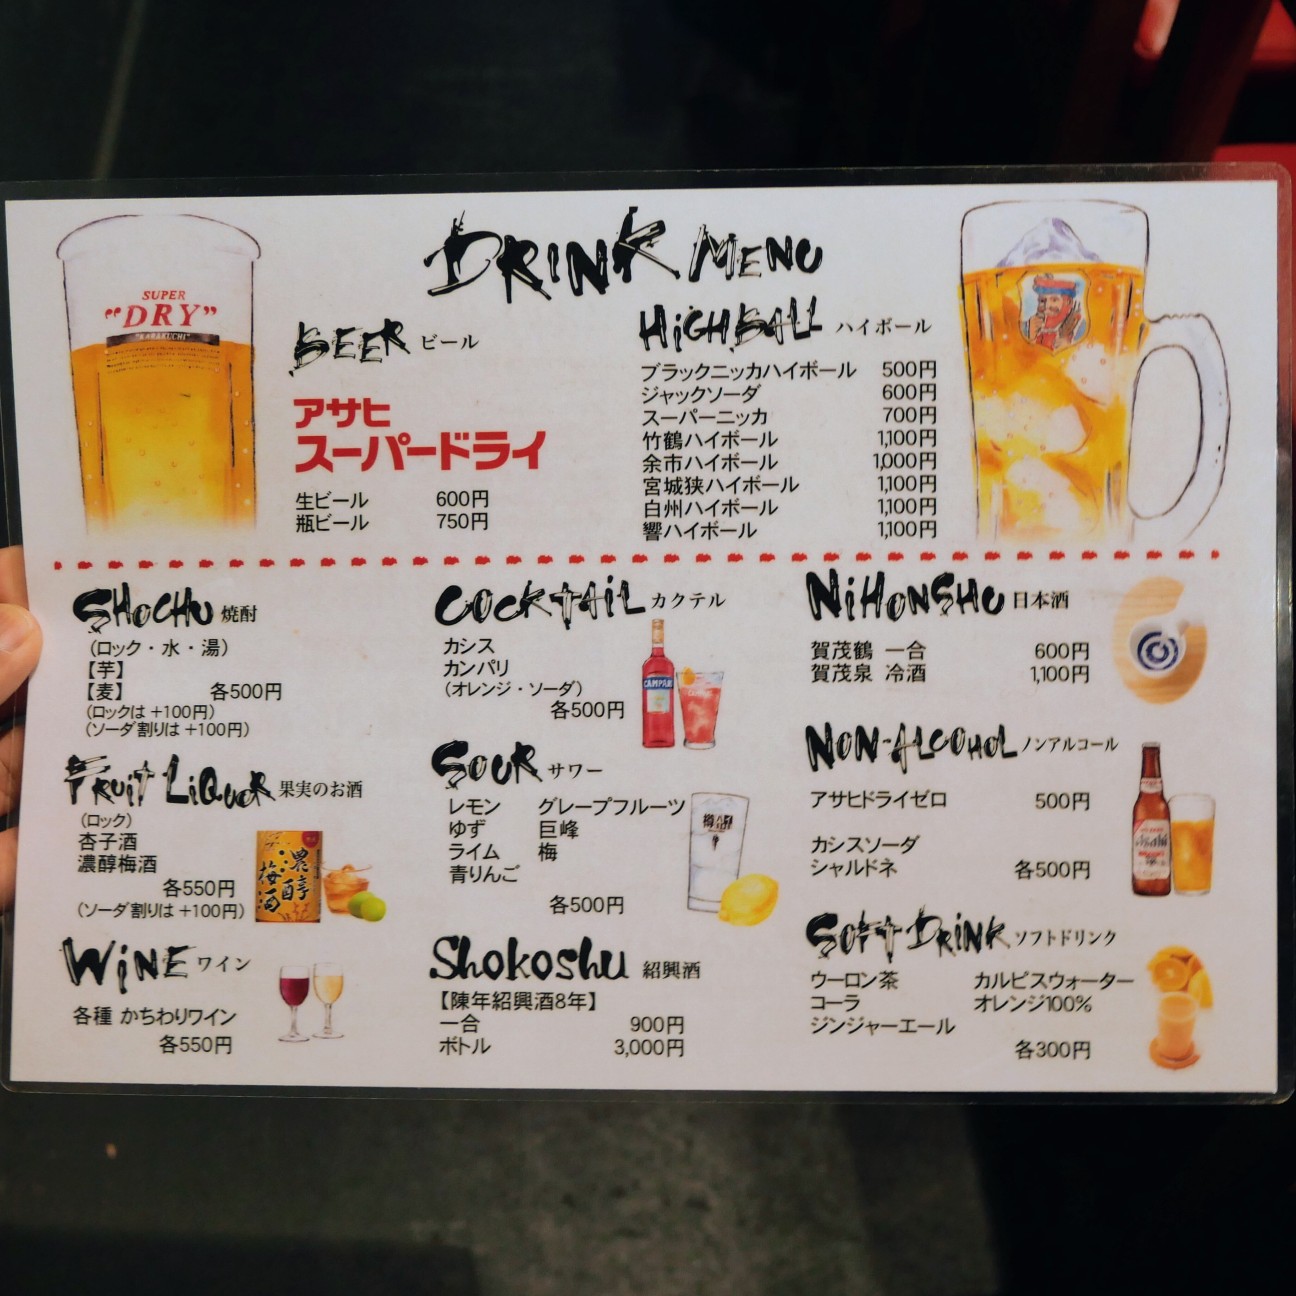 DRINK MENU
SUPER
"DRY"
"KARAKUCHI"
BEER ビール
アサヒ
スーパードライ
生ビール 600円
瓶ビール 750円
HIGHBALL ハイボール
ブラックニッカハイボール 500円
ジャックソーダ 600円
スーパーニッカ 700円
竹鶴ハイボール 1,100円
余市ハイボール 1,000円
宮城狭ハイボール 1,100円
白州ハイボール 1,100円
響ハイボール 1,100円
SHOCHU 焼酎
（ロック・水・湯）
【芋】
【麦】 各500円
（ロックは +100円）
（ソーダ割りは +100円）
FRUIT LIQUOR 果実のお酒
（ロック）
杏子酒
濃醇梅酒
各550円
（ソーダ割りは +100円）
濃醇
梅酒
WINE ワイン
各種 かちわりワイン
各550円
COCKTAIL カクテル
カシス
カンパリ
（オレンジ・ソーダ）
各500円
CAMPARI
SOUR サワー
レモン グレープフルーツ
ゆず 巨峰
ライム 梅
青りんご
各500円
Shokoshu 紹興酒
【陳年紹興酒8年】
一合 900円
ボトル 3,000円
NIHONSHU 日本酒
賀茂鶴 一合 600円
賀茂泉 冷酒 1,100円
NON-ALCOHOL ノンアルコール
アサヒドライゼロ 500円
カシスソーダ
シャルドネ 各500円
Asahi
SOFT DRINK ソフトドリンク
ウーロン茶 カルピスウォーター
コーラ オレンジ100%
ジンジャーエール
各300円